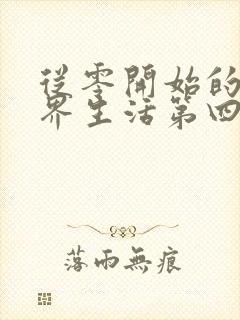 從零開始的
界生活第四
落雨無痕